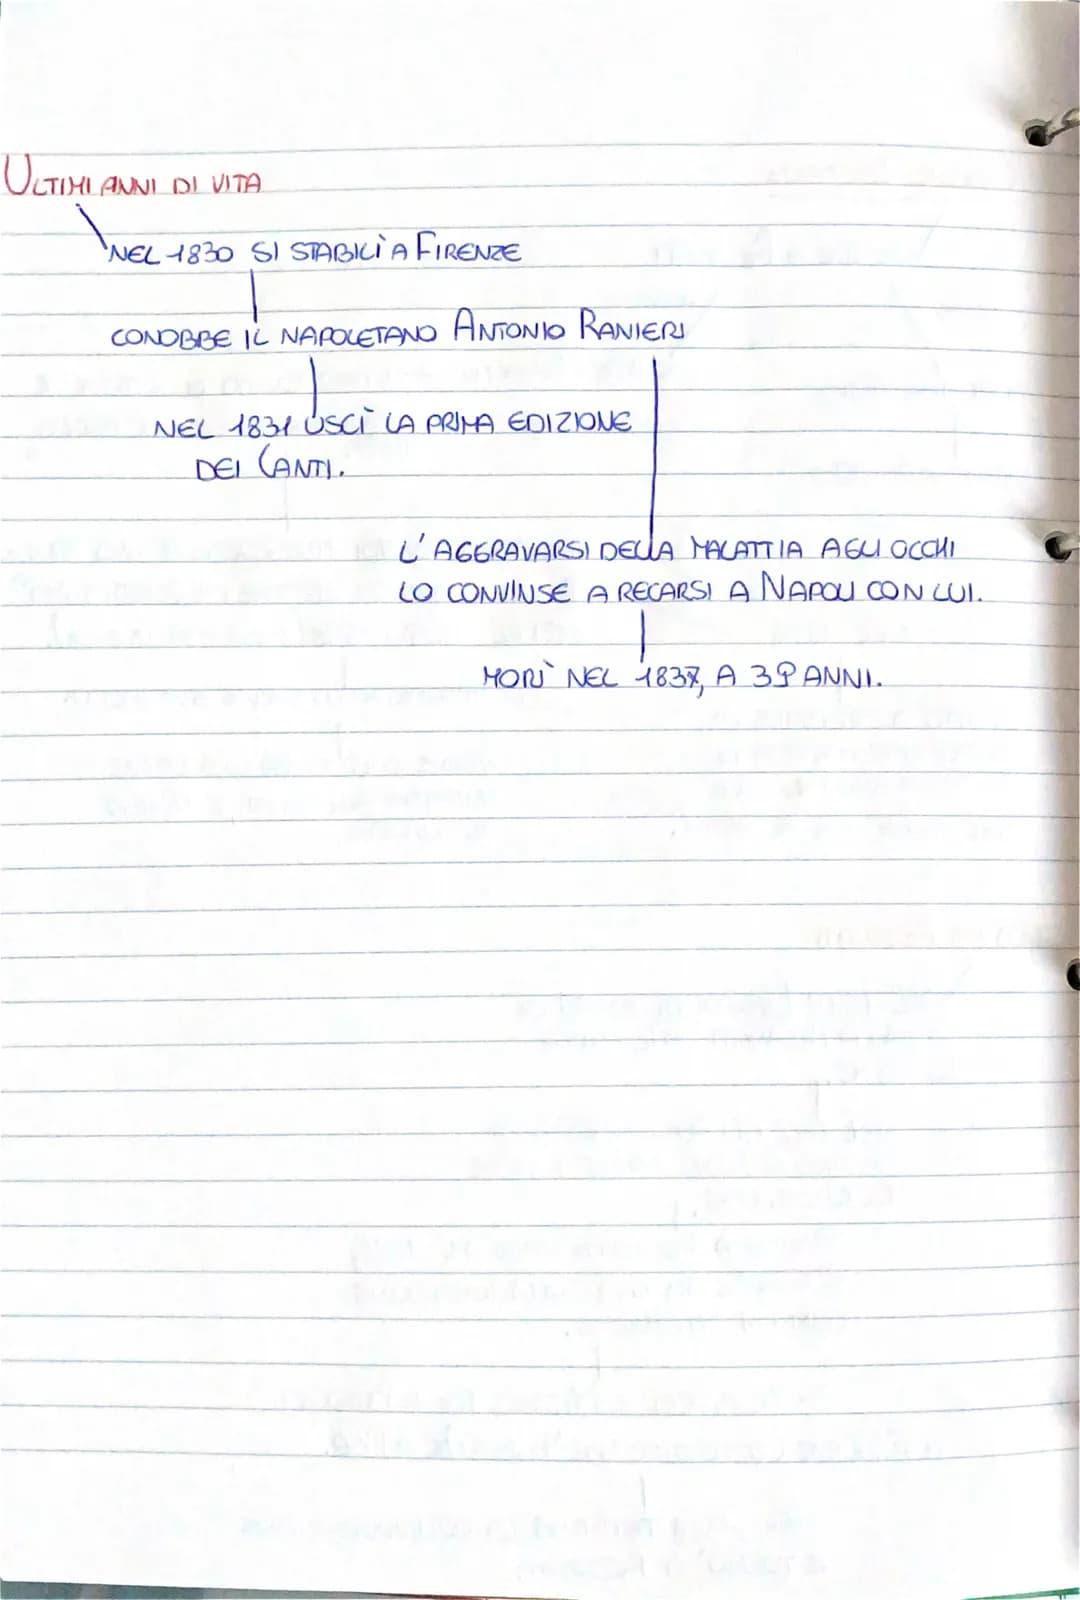 ULTIMI ANNI DI VITA
NEL 1830 SI STABILÌ A FIRENZE
CONOBBE IL NAPOLETANO ANTONIO RANIERI
NEL 1831 USCÌ LA PRIMA EDIZIONE
DEI CANTI.
L'AGGRAVARSI DELLA MALATTIA AGLI OCCHI
LO CONVINSE A RECARSI A NAPOLI CON LUI.
MORÌ NEL 1837, A 39 ANNI.